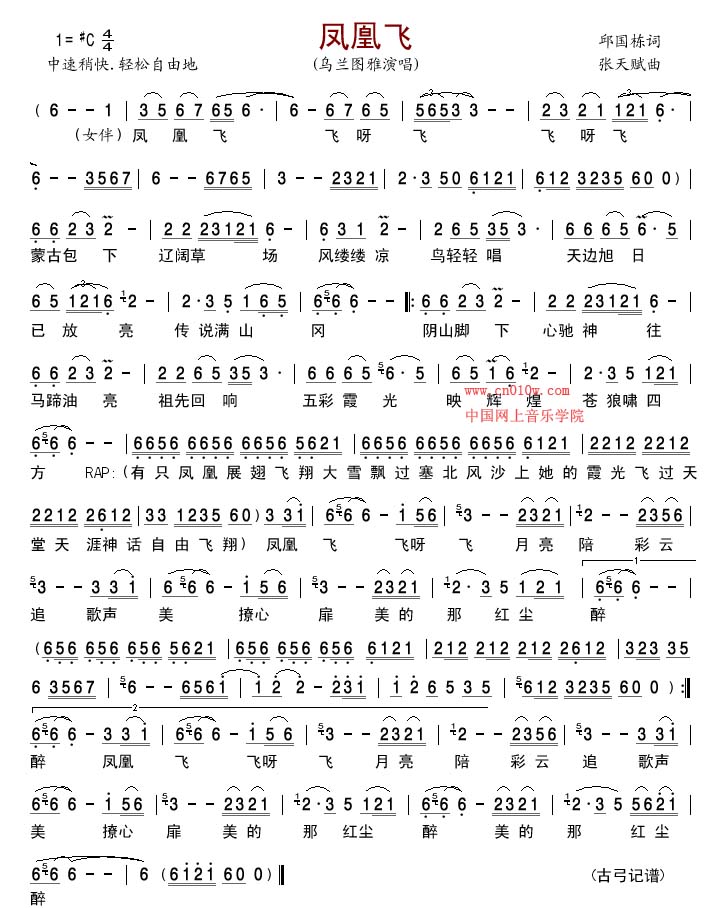 凤凰飞
1= #C 4/4
邱国栋词
中速稍快.轻松自由地
(乌兰图雅演唱)
张天赋曲
( 6 - - 1 | 3 5 6 7 6 5 6 · | 6 - 6 7 6 5 | 5 6 5 3 3 - - | 2 3 2 1 1 2 1 6 · |
(女伴) 凤 凰 飞 飞 呀 飞 飞 呀 飞
6 - - 3567 | 6 - - 6765 | 3 - - 2321 | 2·3 50 6121 | 612 3235 60 0 )
6 6 2 3 2 - | 2 2 23121 6 - | 6 3 1 2 - | 2 6 5 3 5 3 · | 6 6 6 5 6 · 5 |
蒙古包 下 辽阔草 场 风缕缕 凉 鸟轻轻 唱 天边旭 日
6 5 1216 2 - | 2·3 5 1 6 5 | 6 6 - - |: 6 6 2 3 2 - | 2 2 23121 6 - |
已 放 亮 传 说满 山 冈 阴山脚 下 心驰 神 往
6 6 2 3 2 - | 2 2 6 5 35 3 · | 6 6 2 3 6 · 5 | 6 5 1 6 2 - | 2·3 5 121 |
马蹄油 亮 祖先回 响 五彩 霞 光 映 辉 煌 苍 狼啸 四
www.cn010w.com
中国网上音乐学院
6 6 - - | 6656 6656 6656 5621 | 6656 6656 6656 6121 | 2212 2212
方 RAP:(有 只 凤 凰 展 翅 飞 翔 大 雪 飘 过 塞 北 风 沙 上 她 的 霞 光 飞 过 天
2212 2612 | 33 1235 60 ) 3 3 1 | 6 6 - 1 56 | 3 - - 2321 | 2 - - 2356 |
堂 天 涯神 话 自 由 飞 翔) 凤凰 飞 飞呀 飞 月 亮 陪 彩 云
1
3 - - 3 3 1 | 6 6 - 1 5 6 | 3 - - 2321 | 2·3 5 1 2 1 | 6 6 - - |
追 歌声 美 撩心 扉 美 的 那 红 尘 醉
(656 656 656 5621 | 656 656 656 6121 | 212 212 212 2612 | 323 35
6 3567 | 6 - - 6561 | 1 2 2 - 231 | 1 2 6 5 3 5 | 612 3235 60 0 ) :|
2
6 6 - 3 3 1 | 6 6 - 1 5 6 | 3 - - 2321 | 2 - - 2356 | 3 - - 3 3 1 |
醉 凤凰 飞 飞呀 飞 月 亮 陪 彩 云 追 歌声
6 6 - 1 56 | 3 - - 2321 | 2·3 5 121 | 6 6 - 2321 | 2·3 5 5621 |
美 撩心 扉 美 的 那 红尘 醉 美 的 那 红 尘
6 6 6 - - | 6 ( 6121 60 0 ) ||
(古弓记谱)
醉